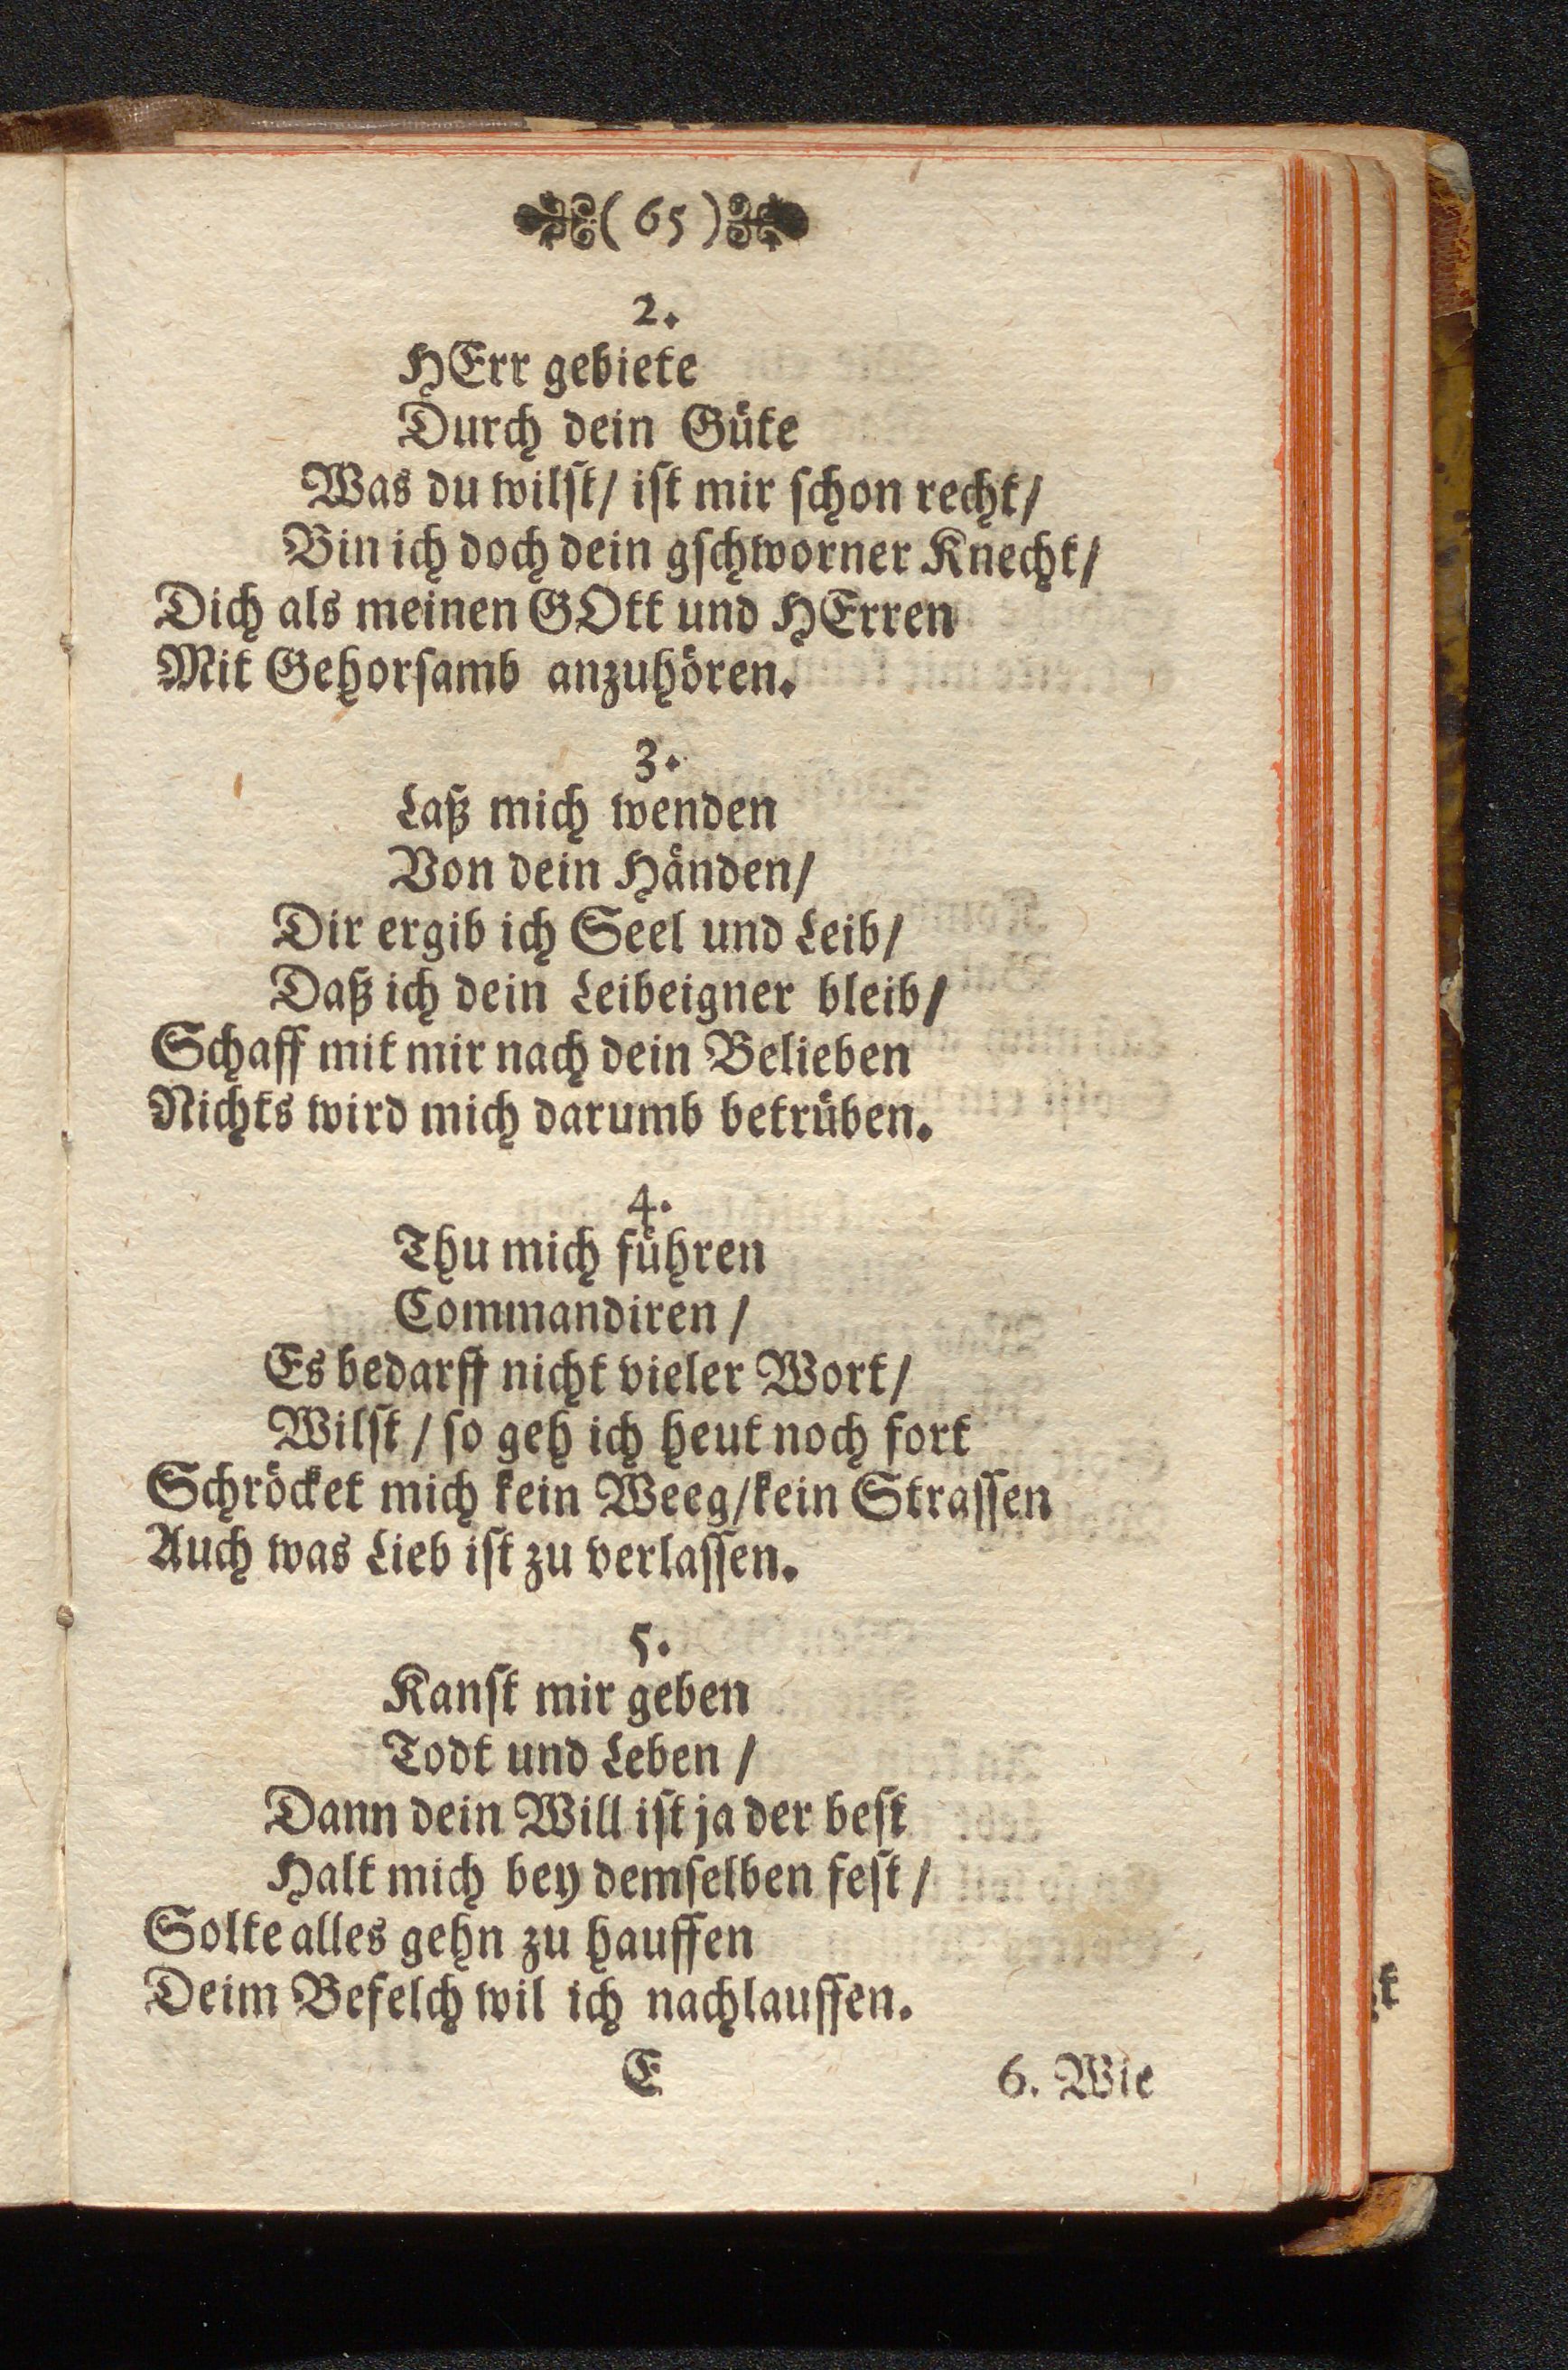 ( 65 )
2.
HErr gebiete
Durch dein Güte
Was du wilst/ ist mir schon recht/
Bin ich doch dein gschworner Knecht/
Dich als meinen GOtt und HErren
Mit Gehorsamb anzuhören.
3.
Laß mich wenden
Von dein Händen/
Dir ergib ich Seel und Leib/
Daß ich dein Leibeigner bleib/
Schaff mit mir nach dein Belieben
Nichts wird mich darumb betrüben.
4.
Thu mich führen
Commandiren /
Es bedarff nicht vieler Wort/
Wilst / so geh ich heut noch fort
Schröcket mich kein Weeg/kein Strassen
Auch was Lieb ist zu verlassen.
5.
Kanst mir geben
Todt und Leben /
Dann dein Will ist ja der best
Halt mich bey demselben fest /
Solte alles gehn zu hauffen
Deim Befelch wil ich nachlauffen.
E 6. Wie